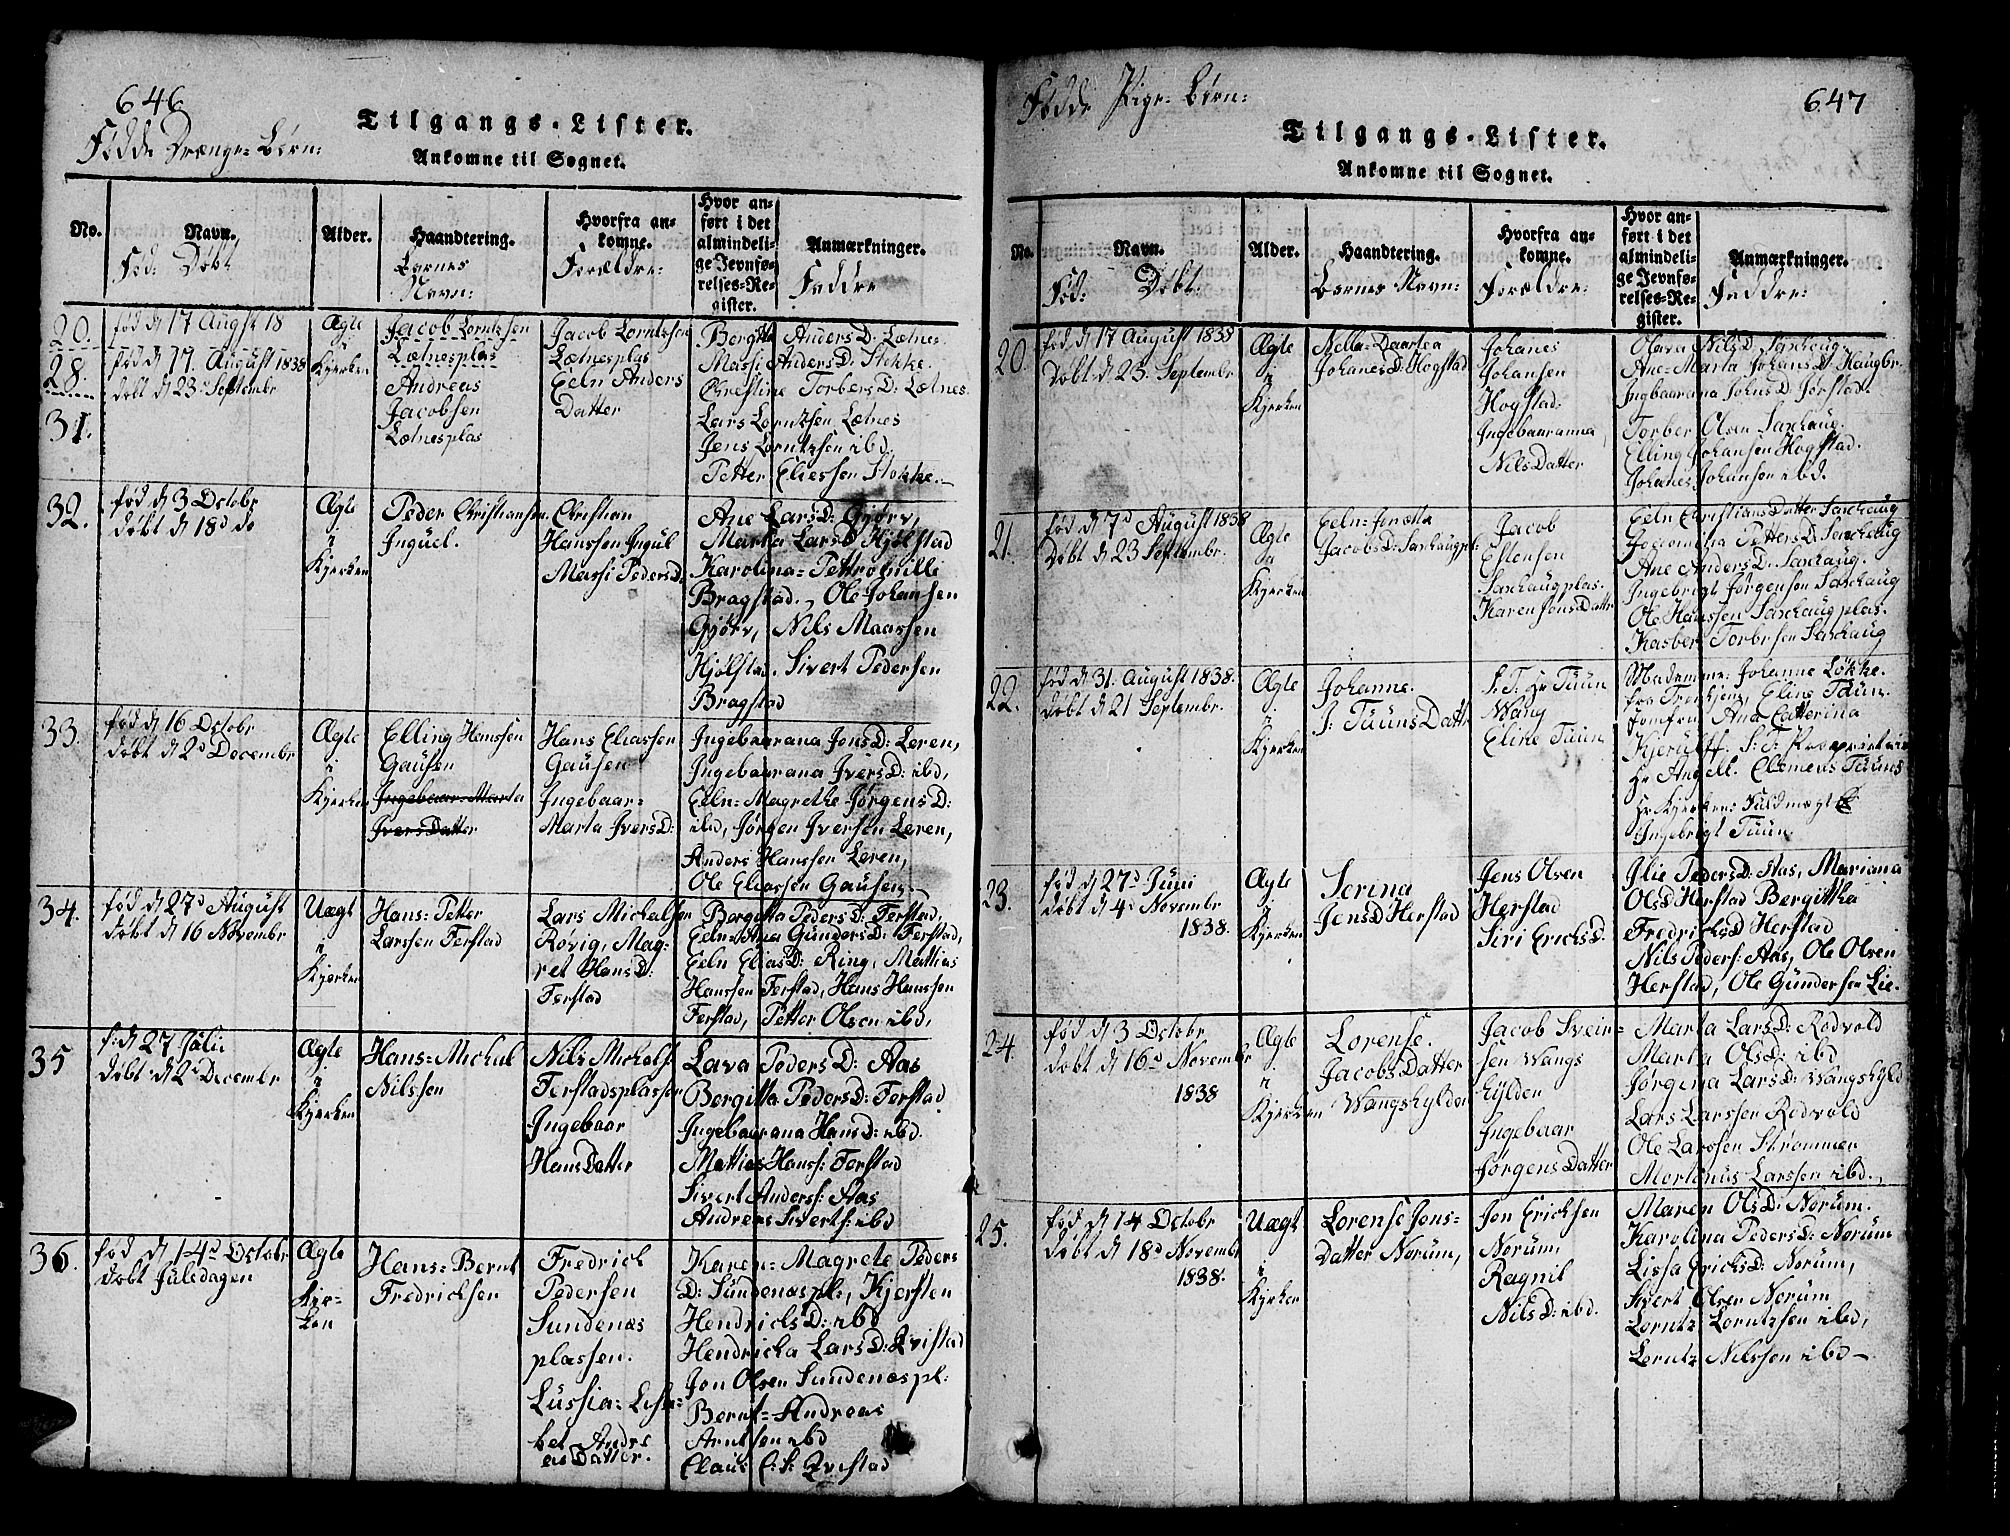 646
Tilgangs-Lister.
Fødde Drænge-Børn:
Ankomne til Sognet.
No.
Navn.
Fød: Døbt
Alder.
Haandtering.
Barnes
Navn:
Hvorfra an-
komne.
Forældre:
Hvor an-
ført i det
almindeli-
ge Jevnfø-
relses-Re-
gister.
Anmærkninger.
Faddre
20.
28.
31.
fød d 17 August 18
fød d 17. August 1838
døbt d 23 Septembr
Ægte
i
Kjerken
Jacob Lorntzsen
Lætnesplas
Andreas
Jacobsen
Lætnesplas
Jacob Lorntzsen
Lætnesplas
Eeln Anders
Datter
Bergitta Anders D. Lætnes
Massi Anders D: Stokke.
Christine Torbers D: Lætnes.
Lars Lorntzsen Lætnes
Jens Lorntzsen ibd,
Petter Eliessen Stokke.
32.
fød d 3 Octobr
døbt d 18d do
Ægte
i
Kjerken
Peder Christiansen
Ingüel.
Christian
Hanssen Ingül
Massi Peders D:
Ane Lars D: Gjørv,
Marta Lars D Hjølstad
Karolina= Pettronille
Bragstad., Ole Johansen
Gjørv, Nils Maassen
Hjølstad. Sivert Pedersen
Bragstad
33.
fød d 16 Octobr
døbt d 2d Decembr
Ægte
i
Kjerken
Elling Hanssen
Gaüsen
Ingebaar=Marta
Ivers Datter
Hans Eliassen
Gaüsen
Ingebaar=
Marta Ivers D:
Ingebaarana Jons D: Leren,
Ingebaarana Ivers D: ibd,
Eeln=Magrethe Jørgens D:
ibd, Jørgen Iversen Leren,
Anders Hanssen Leren,
Ole Eliassen Gausen.
34.
fød d 27d August
døbt d 16 Novembr
Uægt
i
Kjerken
Hans=Petter
Larssen Ferstad
Lars Michelsen
Røvig, Mag-
ret Hans D:
Ferstad
Bergitta Peders D: Ferstad,
Eeln=Anna Günders D: Ferstad,
Eeln Elias D: Ring, Mattias
Hanssen Ferstad, Hans Hanssen
Ferstad, Petter Olsen ibd,
35
f: d 27 Jülii
døbt d 2d Decembr
Ægte
i
Kjerken
Hans=Michel
Nilssen
Nils Michels:
Ferstadsplassen
Ingebaar
Hans Datter
Lava Peders D: Aas
Bergitta Peders D: Ferstad
Ingebaarana Hans D: ibd.
Mattias Hanss: Ferstad
Sivert Anderss: Aas
Andreas Sivertss: ibd
36.
fød d 14d Octobr
døbt Juledagen
Ægte
i
Kjer=
ken
Hans=Bernt
Fredrichsen
Fredrich
Pedersen
Sundenæs
plassen.
Lussia=Lisa=
bet Andre
as Datter.
Karen=Magrete Peders
D: Sundenæspl:, Kjersten
Hendrichs D: ibd
Hendricka Lars D: Qvistad
Jon Olsen Sundenæs pl:
Bernt=Andreas
Arntsen ibd
Claus C: S: Qvistad
Fødde Pige=Børn:
647
Tilgangs-Lister.
Ankomne til Sognet.
No.
Navn.
Fød: Døbt.
Alder.
Haandtering.
Barnes Navn:
Hvorfra an-
komne.
Forældre:
Hvor an-
ført i det
almindeli-
ge Jevnfø-
relses-Re-
gister.
Anmærkninger.
Faddre:
20.
fød d 17 August 1838
Døbt d 23. Septembr
Ægte
i
Kjerken
Nella=Daartea
Johanes D: Hogstad
Johanes
Johansen
Hogstad
Ingebaaranna
Nils Datter
Olava Nils D. Saxhaug.
Ane=Marta Johans D: Haugbr.
Ingbaarana Johns D. Jørstad.
Torber Olsen Saxhaug.
Elling Johansen Hogstad.
Johanes Johansen ibd.
21.
fød d 7d August 1838
Døbt d 23 Septembr.
Ægte
i
Kjerken
Eeln=Jonetta
Jacobs D: Saxhaugpl:
Jacob
Estensen
Saxhaugplas.
Karen Jons Dattr
Eeln Christians Datter Saxhaug
Jocomina Petters D. Saxhaug
Ane Anders D. Saxhaug.
Ingebrigt Jørgensen Saxhaug
Ole Hanssen Saxhaugplas.
Kasber Torbersen Saxhaug
22.
fød d 31. August 1838.
døbt d 21 Septembr.
Ægte
i
Kjerken
Johanne.
J: Tüüns Dattr
S. T. Hr Tüün
Wang
Eline Tüün
Madamme: Johanne Løkke.
fra Tronhjem, Eline Tüün.
Jomfru Ana Catterina
Kjerülff. S. T. Proprietair
Hr Angell. Clemens Tüüns
Hr Kjerkes: Fuldmægt
Ingebrigt Tüün
23.
fød d 27d Juni
døbt d 4d Novembr
1838.
Ægte
i
Kjerken
Serina
Jens D Herstad
Jens Olsen
Herstad
Siri Erichs D.
Ilie Peders D: Aas, Mariana
Ols D Herstad Bergittha
Fredrichs D Herstad
Nils Peders: Aas, Ole Olsen
Herstad, Ole Gundersen Lie.
24.
fød d 3 Octobr
døbt d 16d Novembr
1838
Ægte
i
Kjerken
Lorense.
Jacobs Datter
Wangshylden
Jacob Svein=
sen Wangs
hylden
Ingebaar
Jørgens Datter
Marta Lars D: Rodvold
Marta Ols D: ibd
Jørgina Lars D: Wangshyld
Lars Larssen Rodvold
Ole Larssen Strømmen
Mortinus Larssen ibd.
25.
fød d 14 Octobr
døbt d 18d Novembr
1838.
Uægt
i
Kjerken
Lorense Jons=
Datter Norüm,
Jon Erichsen
Norüm,
Ragnil
Nils D: ibd.
Maren Ols D: Norüm.
Karolina Peders D: Norüm
Lissa Erichs D: Norüm,
Sivert Olsen Norüm
Lorntz Lorntzsen ibd,
Lorntz Nilssen ibd